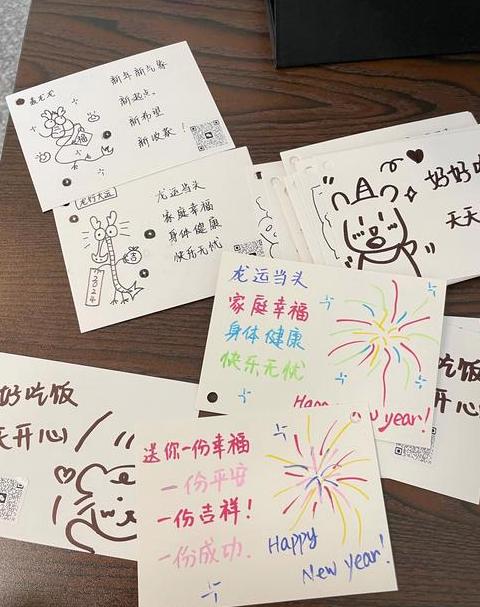 新年新气象
新起点
新希望
新收获!
福
龙行大运
龙运当头
家庭幸福
身体健康
快乐无忧
2024
好好吃
天天
龙运当头
家庭幸福
身体健康
快乐无忧
Happy
New year!
吃饭
开心
好吃饭
天开心
送你一份幸福
一份平安
一份吉祥!
一份成功.
Happy
New year!